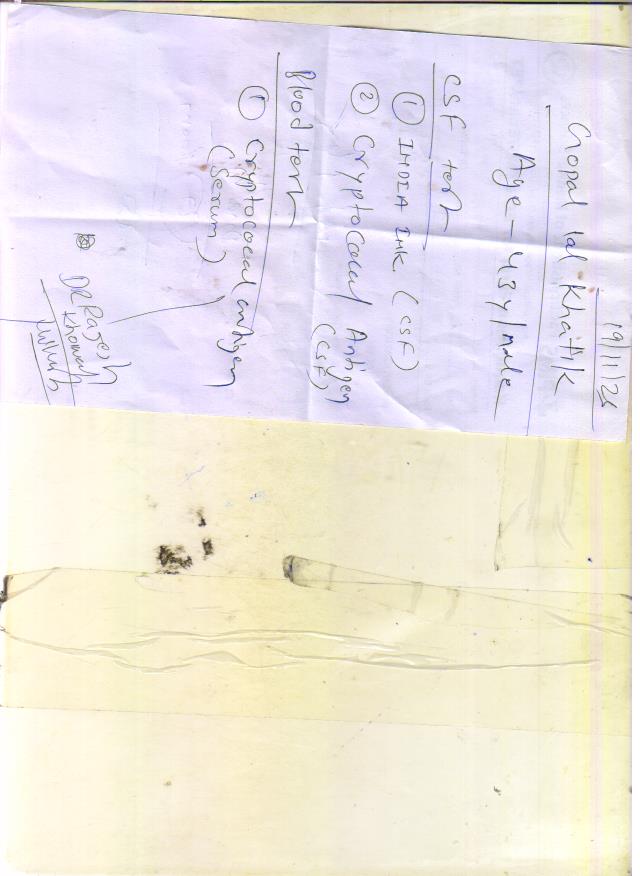 19/11/25
Gopal lal Khatik
Age - 43y/male
CSF test
① INDIA INK. (CSF)
② Cryptococal Antigen
(CSF)
Blood test
① Cryptococal antigen
(Serum)
DR Rajesh